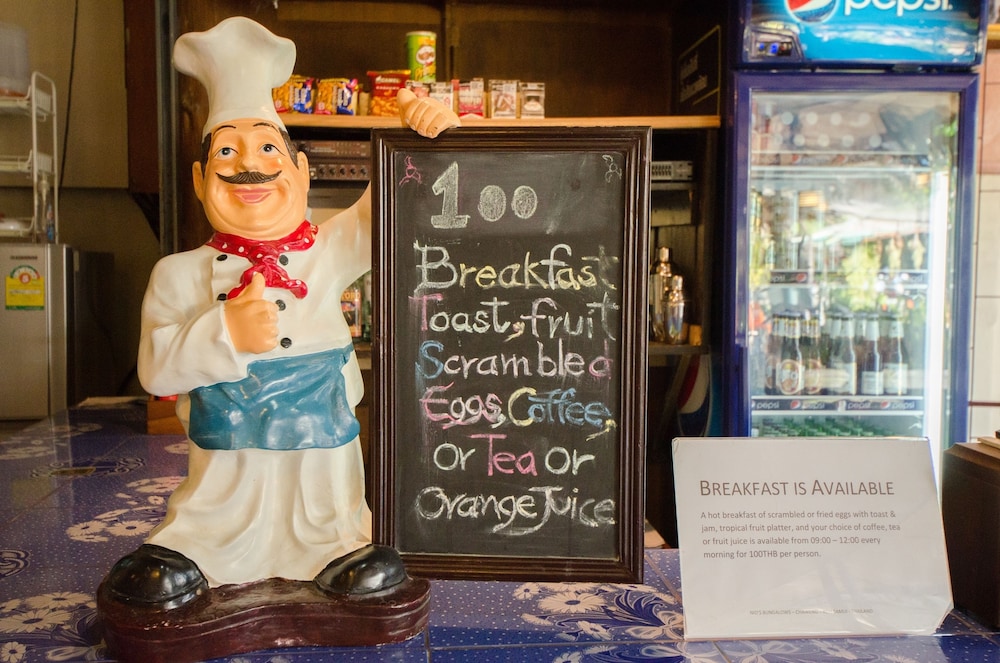 pepsi
100
Breakfast
Toast, fruit
Scrambled
Eggs, Coffee,
or Tea or
Orange Juice
BREAKFAST IS AVAILABLE
A hot breakfast of scrambled or fried eggs with toast &
jam, tropical fruit platter, and your choice of coffee, tea
or fruit juice is available from 09:00 – 12:00 every
morning for 100THB per person.
pepsi